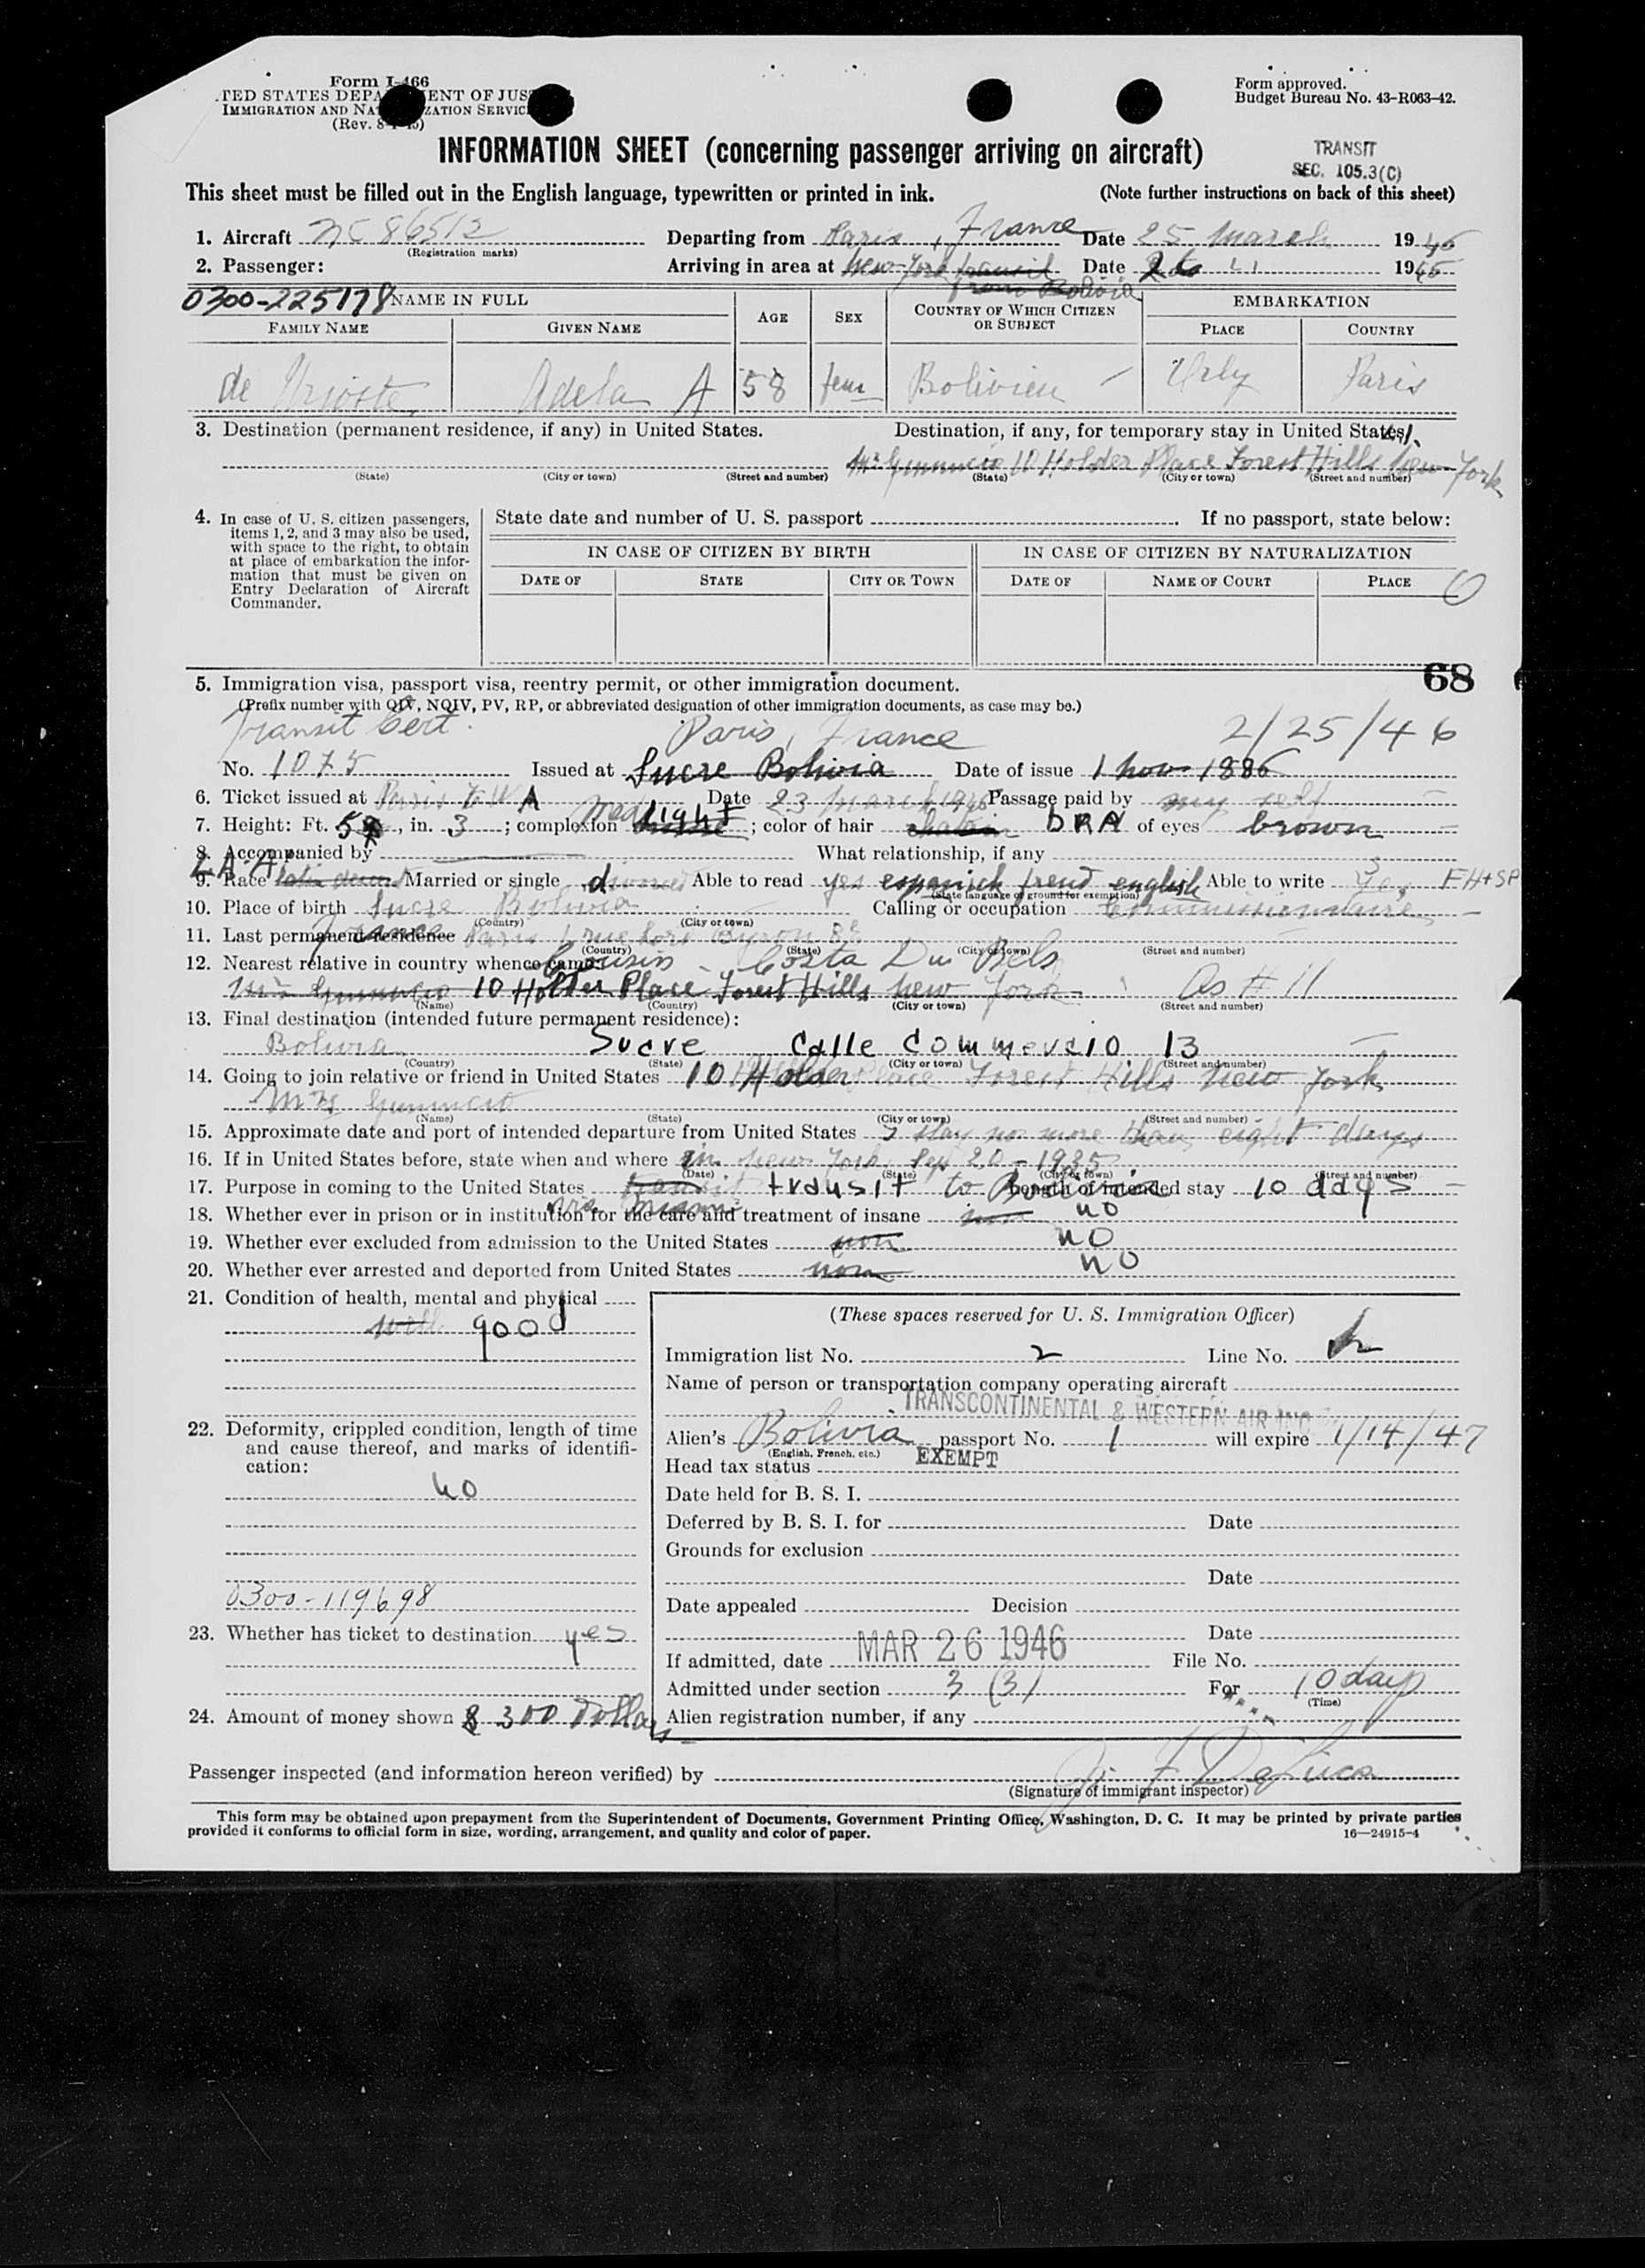 Form I-466
TED STATES DEPA ENT OF JUS
IMMIGRATION AND NA ZATION SERVIC
(Rev. 8-1-45)
Form approved.
Budget Bureau No. 43-R063-42.
INFORMATION SHEET (concerning passenger arriving on aircraft)
TRANSIT
SEC. 105.3(C)
This sheet must be filled out in the English language, typewritten or printed in ink. (Note further instructions on back of this sheet)
1. Aircraft NC 86512 Departing from Paris, France Date 25 March 1946
(Registration marks)
2. Passenger: Arriving in area at New-York transit Date 26 1946
from Bolivia
0300-225178 NAME IN FULL AGE SEX COUNTRY OF WHICH CITIZEN OR SUBJECT EMBARKATION
FAMILY NAME GIVEN NAME PLACE COUNTRY
de Urioste Adela A 58 fem Bolivien Orly Paris
3. Destination (permanent residence, if any) in United States. Destination, if any, for temporary stay in United States.
10 Holder Place Forest Hills New-York
(State) (City or town) (Street and number) (State) (City or town) (Street and number)
4. In case of U. S. citizen passengers, items 1, 2, and 3 may also be used, with space to the right, to obtain at place of embarkation the information that must be given on Entry Declaration of Aircraft Commander.
State date and number of U. S. passport . If no passport, state below:
IN CASE OF CITIZEN BY BIRTH IN CASE OF CITIZEN BY NATURALIZATION
DATE OF STATE CITY OR TOWN DATE OF NAME OF COURT PLACE
0
68
5. Immigration visa, passport visa, reentry permit, or other immigration document.
(Prefix number with QIV, NQIV, PV, RP, or abbreviated designation of other immigration documents, as case may be.)
Transit Cert. Paris, France 2/25/46
No. 1075 Issued at Sucre Bolivia Date of issue 1 nov 1886
6. Ticket issued at Paris T W A Date 23 march 1946 Passage paid by my self
7. Height: Ft. 5, in. 3; complexion med light; color of hair chatain BRN of eyes brown
8. Accompanied by What relationship, if any
LA.A
9. Race Married or single divorced Able to read yes espanich frend english Able to write yes FH+SP
(State language or ground for exemption)
10. Place of birth Sucre Bolivia Calling or occupation
(Country) (City or town)
11. Last permanent residence France Paris 1 rue Lord Byron 8e
(Country) (State) (City or town) (Street and number)
12. Nearest relative in country whence came: Cousin - Costa Du Rels
10 Holder Place Forest Hills New York As # 11
(Name) (Country) (City or town) (Street and number)
13. Final destination (intended future permanent residence):
Bolivia Sucre Calle Commercio 13
(Country) (State) (City or town) (Street and number)
14. Going to join relative or friend in United States 10 Holder Place Forest Hills New York
(Name) (State) (City or town) (Street and number)
15. Approximate date and port of intended departure from United States I stay no more than eight days
16. If in United States before, state when and where in New York Sep 20-1935
(Date) (State) (City or town) (Street and number)
17. Purpose in coming to the United States transit transit to Bolivia Length of intended stay 10 days
via Miami
18. Whether ever in prison or in institution for the care and treatment of insane non no
19. Whether ever excluded from admission to the United States non no
20. Whether ever arrested and deported from United States non no
21. Condition of health, mental and physical
well good
22. Deformity, crippled condition, length of time and cause thereof, and marks of identification:
no
0300-119698
23. Whether has ticket to destination yes
24. Amount of money shown $ 300 Dollars
(These spaces reserved for U. S. Immigration Officer)
Immigration list No. 2 Line No. 2
Name of person or transportation company operating aircraft
TRANSCONTINENTAL & WESTERN AIR INC
Alien's Bolivia passport No. 1 will expire 1/14/47
(English, French, etc.)
Head tax status EXEMPT
Date held for B. S. I.
Deferred by B. S. I. for Date
Grounds for exclusion
Date
Date appealed Decision
Date
If admitted, date MAR 26 1946 File No.
Admitted under section 3 (3) For 10 days
(Time)
Alien registration number, if any
Passenger inspected (and information hereon verified) by J. F DeLuca
(Signature of immigrant inspector)
This form may be obtained upon prepayment from the Superintendent of Documents, Government Printing Office, Washington, D. C. It may be printed by private parties
provided it conforms to official form in size, wording, arrangement, and quality and color of paper. 16—24915-4